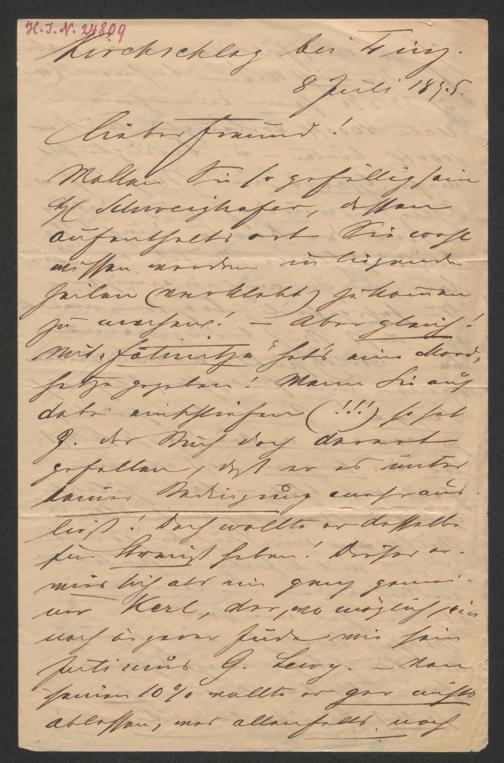 H.I.N. 24809
Kirchschlag bei Linz.
8 Juli 1895.
Lieber Freund!
Wollen Sie so gefällig sein
Schweighofer, dessen
Aufenthalts ort Sie wohl
wissen werden inliegende
Zeilen (verklebt) zukommen
zu machen! – Aber gleich!
Mit „Fatinitza" hat's eine Mord,
hetze gegeben! Wenn Sie auch
dabei einschliefen (!!!) so hat
J. das Buch doch derart
gefallen, daß er es unter
keiner Bedingung
ließ! Doch wollte er dasselbe
für haben! Dieser er-
wies sich als ein ganz gemei-
ner Kerl, der, wo möglich, ein
noch ärgerer Jude wie sein
Intimus G. Lewy. – Von
seinen 10% wollte er gar nichts
ablassen, was allenfalls noch